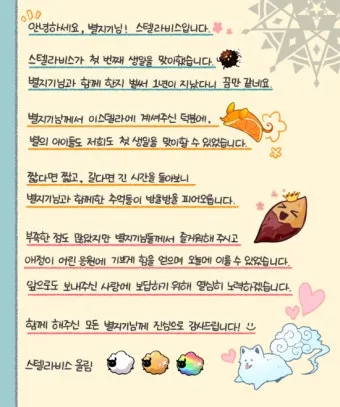 안녕하세요, 별지기님! 스텔라비스입니다.
스텔라비스가 첫 번째 생일을 맞이했습니다.
별지기님과 함께 한지 벌써 1년이 지났다니 꿈만 같네요.
별지기님께서 이스텔라에 계셔주신 덕분에,
별의 아이들도 저희도 첫 생일을 맞이할 수 있었습니다.
짧다면 짧고, 길다면 긴 시간을 돌아보니
별지기님과 함께한 추억들이 방울방울 피어오릅니다.
부족한 점도 많았지만 별지기님들께서 즐거워해 주시고
애정이 어린 응원에 기쁘게 힘을 얻으며 오늘에 이를 수 있었습니다.
앞으로도 보내주신 사랑에 보답하기 위해 열심히 노력하겠습니다.
함께 해주신 모든 별지기님께 진심으로 감사드립니다!
스텔라비스 올림